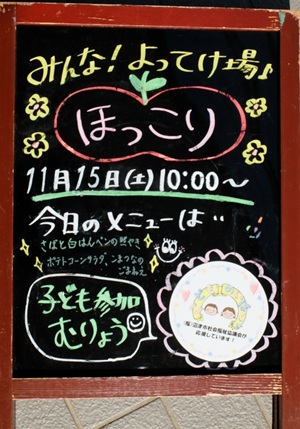 みんな！よってけ場♪
ほっこり
11月15日(土)10:00〜
今日のメニューは‥
さばと白はんぺんの照やき
ポテトコーンサラダ、こまつなの
ごまあえ
子ども参加
むりょう
(福)沼津市社会福祉協議会が
応援しています！